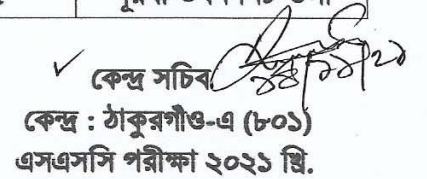 কেন্দ্র সচিব
কেন্দ্র : ঠাকুরগাঁও-এ (৮০১)
এসএসসি পরীক্ষা ২০২১ খ্রি.